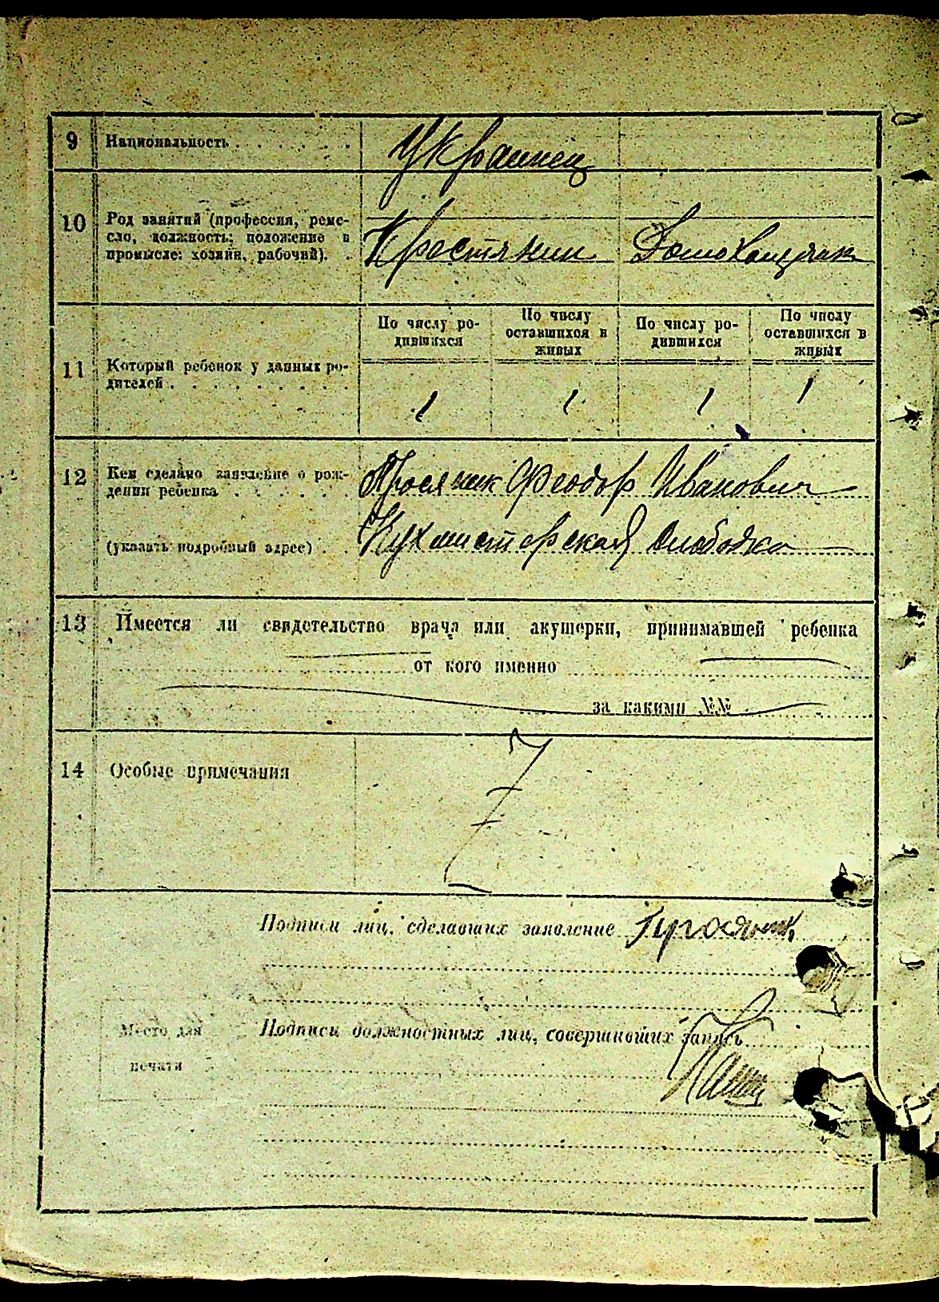 9 Национальность . . . . . . . Украинец
10 Род занятий (профессия, реме-
сло, должность: положение в
промысле: хозяин, рабочий). . Крестянин Домохозяйка
По числу ро-
дившихся По числу
оставшихся в
живых По числу ро-
дившихся По числу
оставшихся в
живых
11 Который ребенок у данных ро-
дителей . . . . . . . . 1 1 1 1
12 Кем сделано заявление о рож-
дении ребенка . . . . . . Просяник Феодор Иванович
(указать подробный адрес) . Кухмистерская слободка
13 Имеется ли свидетельство врача или акушерки, принимавшей ребенка
от кого именно
за какими №№
14 Особые примечания Z
Подписи лиц, сделавших заявление Просяник
Место для
печати
Подписи должностных лиц, совершивших запись